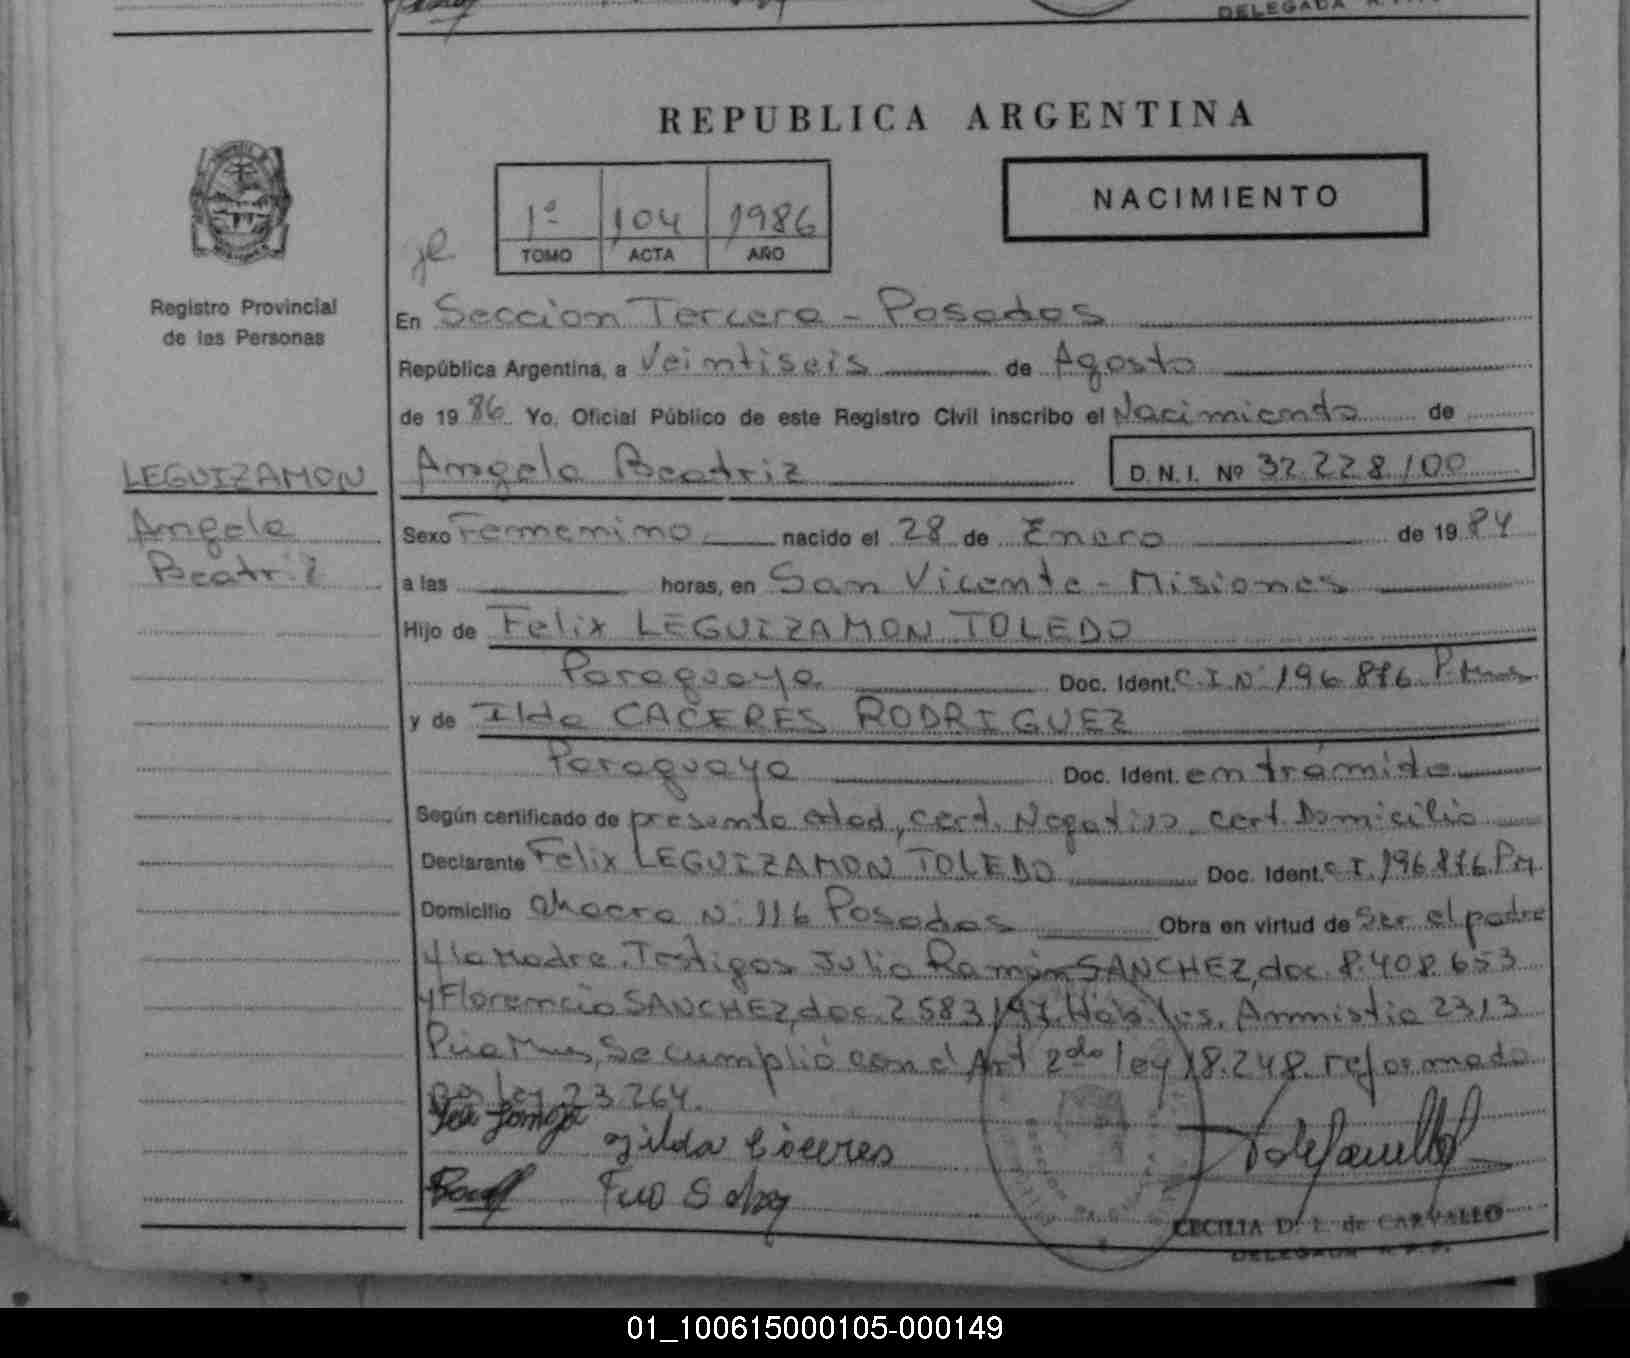 DELEGADA
REPUBLICA ARGENTINA
1ª 104 1986
TOMO ACTA AÑO
NACIMIENTO
Registro Provincial
de las Personas
En Seccion Tercera - Posadas
República Argentina, a Veintiseis de Agosto
de 1986 Yo, Oficial Público de este Registro Civil inscribo el Nacimiento de
LEGUIZAMON
Angela Beatriz D.N.I. Nº 32.228.100
Angela
Beatriz
Sexo Femenino nacido el 28 de Enero de 1984
a las horas, en San Vicente - Misiones
Hijo de Felix LEGUIZAMON TOLEDO
Paraguaya Doc. Ident. C.I.Nº 196.876
y de Ilda CACERES RODRIGUEZ
Paraguaya Doc. Ident. en trámite
Según certificado de presunta edad, cert. Negativo, cert. Domicilio
Declarante Felix LEGUIZAMON TOLEDO Doc. Ident. C.I. 196.876
Domicilio chacra Nº 116 Posadas Obra en virtud de Ser el padre
y la Madre. Testigos Julio Ramón SANCHEZ, doc. 8.408.653
y Florencio SANCHEZ, doc. 2583197. Hábiles. Amnistia 2313
Se cumplió con el Art 2do ley 18.248 reformado
por ley 23.264.
Gilda Cáceres
CECILIA D. L. de CARVALLO
DELEGADA R.P.P.
01_100615000105-000149